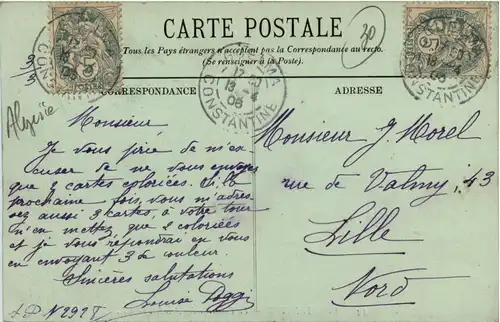 CARTE POSTALE
Tous les Pays étrangers n'acceptent pas la Correspondance au recto.
(Se renseigner à la Poste).
30
CORRESPONDANCE
ADRESSE
CONSTANTINE
17
13 - 4
05
CONSTANTINE
CONSTANTINE
Algérie
Monsieur
Je vous prie de m'ex
cuser de ne vous envoyer
que 2 cartes coloriées. Si la
prochaine fois, vous m'adres
sez aussi 3 cartes, à votre tour
n'en mettez que 2 coloriées
et je vous répondrai en vous
en envoyant 3 de couleur.
Sincères salutations
Louise
Monsieur J. Morel
rue de Valmy, 43
Lille
Nord